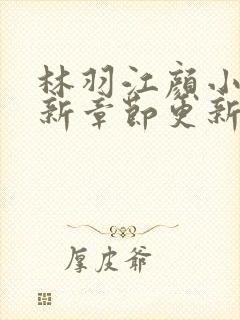 林羽江颜小
新章节更新
厚皮爷